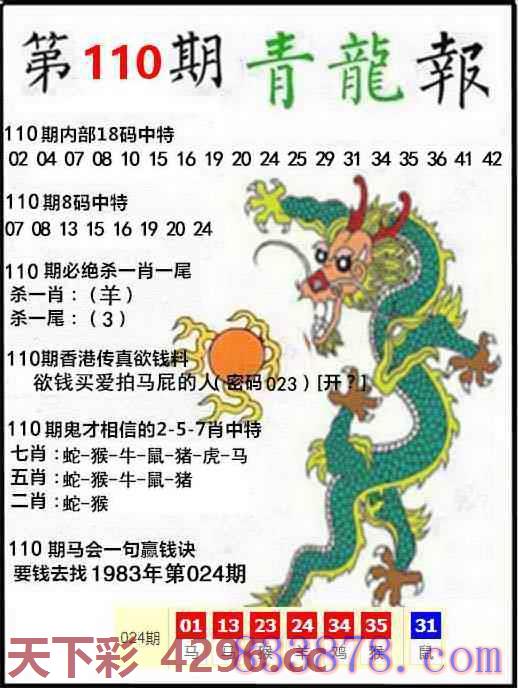 第110期 青龍報
110期内部18码中特
02 04 07 08 10 15 16 19 20 24 25 29 31 34 35 36 41 42
110期8码中特
07 08 13 15 16 19 20 24
110期必绝杀一肖一尾
杀一肖：（羊）
杀一尾：（3）
110期香港传真欲钱料
欲钱买爱拍马屁的人（密码023）[开？]
110期鬼才相信的2-5-7肖中特
七肖：蛇-猴-牛-鼠-猪-虎-马
五肖：蛇-猴-牛-鼠-猪
二肖：蛇-猴
110期马会一句赢钱诀
要钱去找1983年第024期
024期 01 13 23 24 34 35 31
马 马 猴 羊 鸡 猴 鼠
天下彩 4296.cc